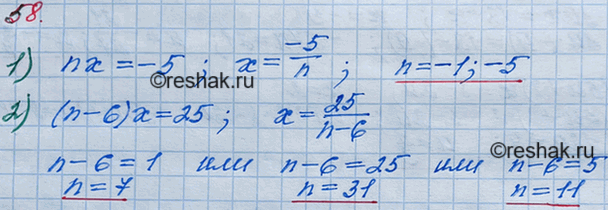 58.
1) nx = -5 ; x = -5/n ; n = -1; -5
©reshak.ru
2) (n-6)x = 25 ; x = 25/(n-6)
©reshak.ru
n-6=1 или n-6=25 или n-6=5
n=7 n=31 n=11